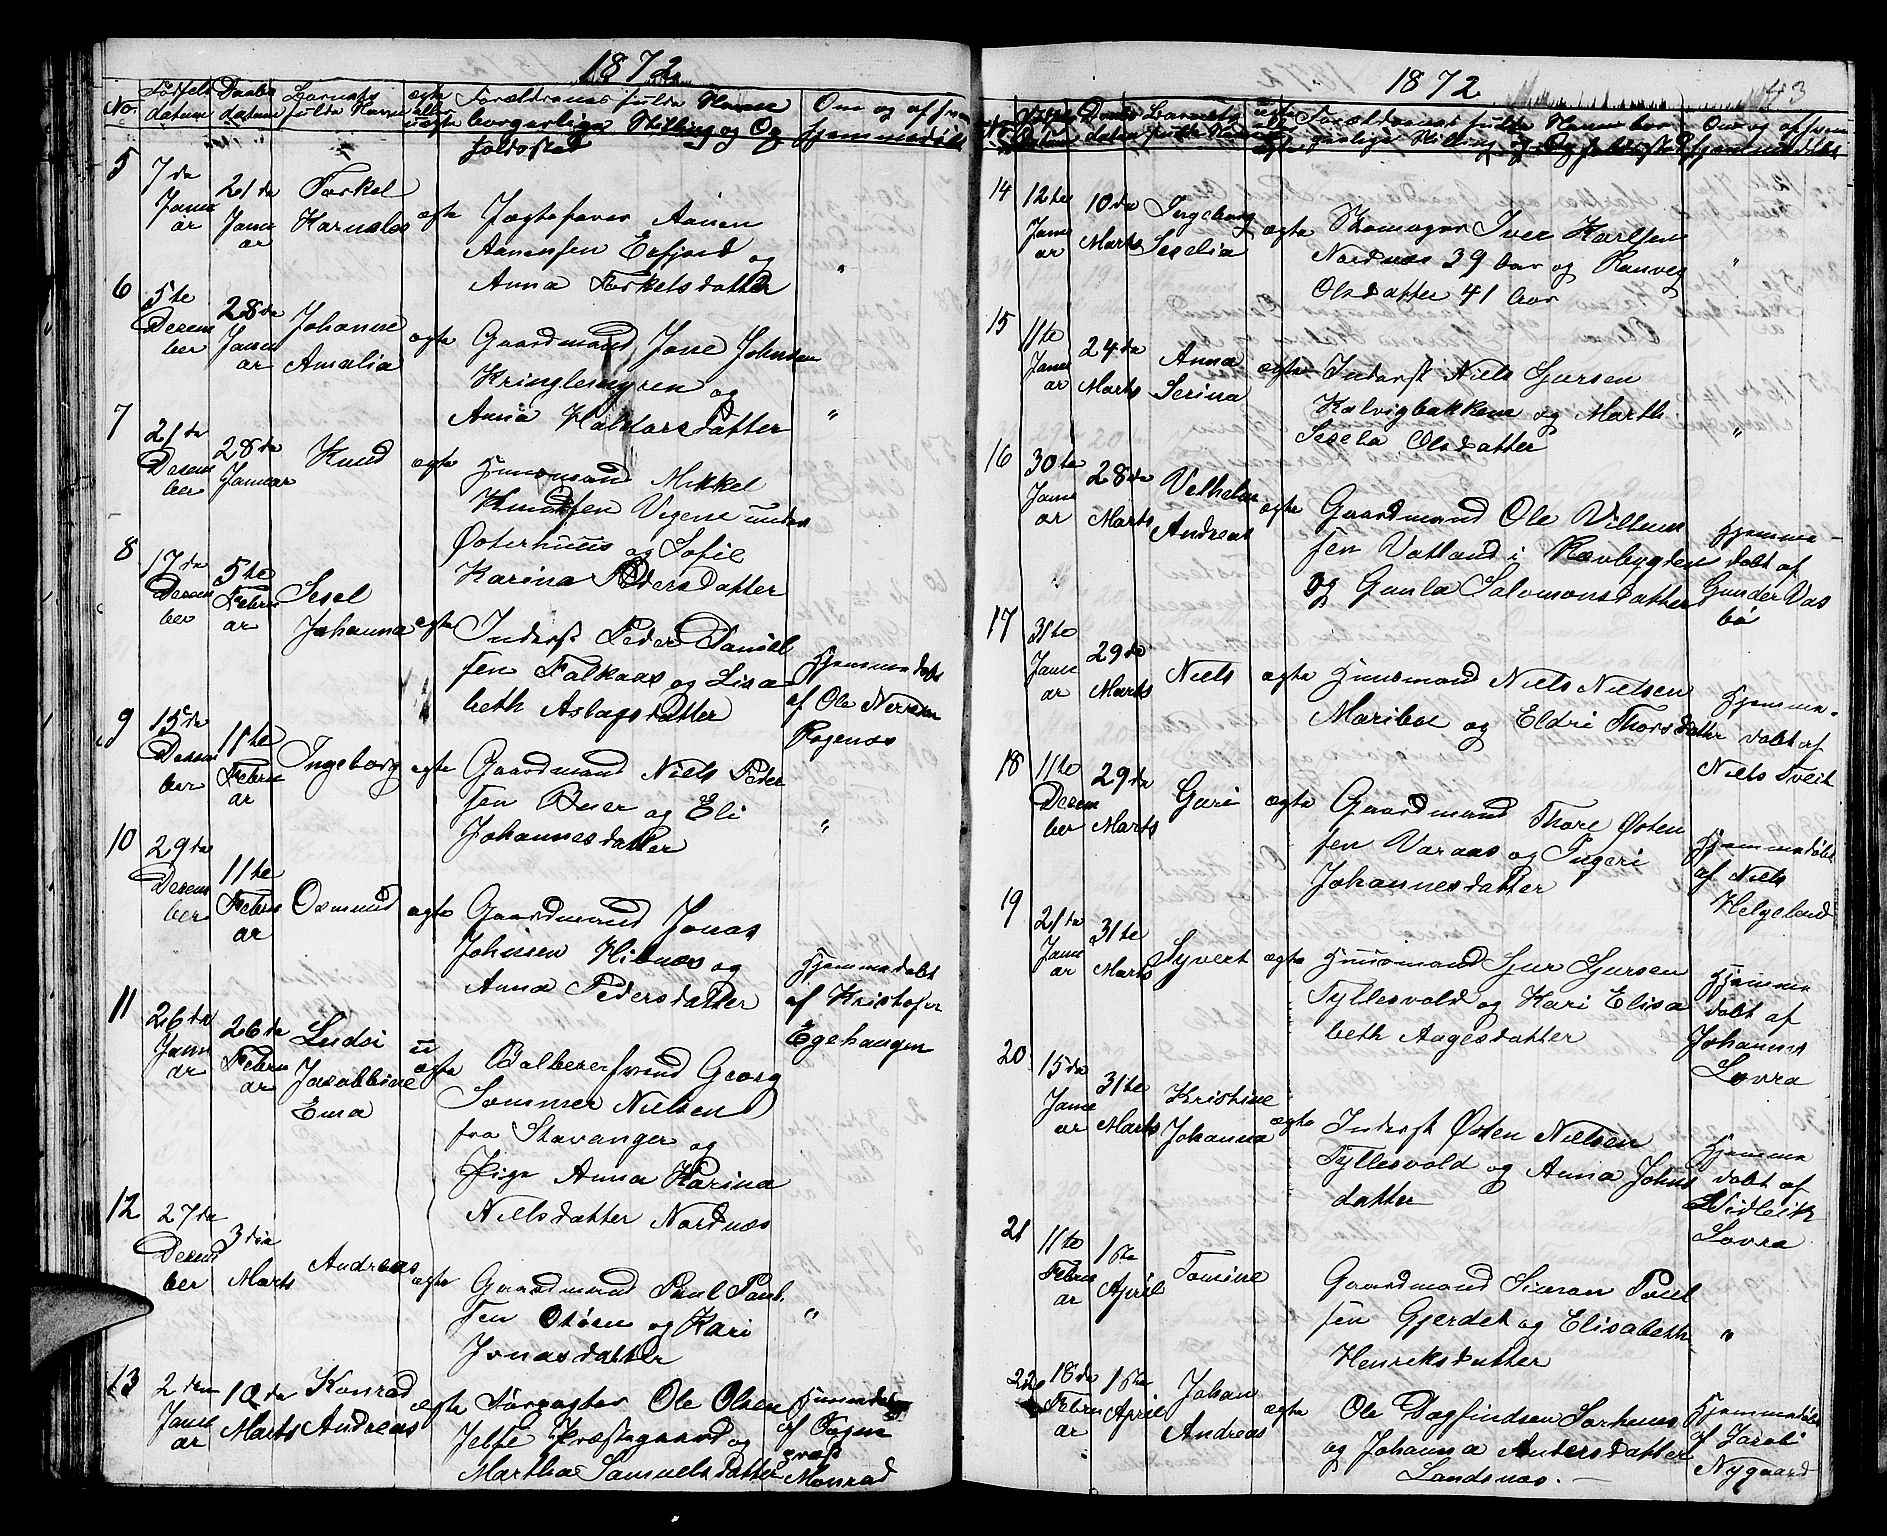 1872
No
Fødsels datum
Daabs datum
Barnets fulde Navn
ægte eller uægte
Forældrenes fulde Navne
borgerlige Stilling og Op
holdssted
Om og af hvem
hjemmedøbt
5
7da Januar
21da Januar
Torkel Karnelus
ægte
Jægtefører Aanen
Aanensen Erfjord og
Anna Torkelsdatter
"
6
5te Desember
28da Januar
Johanne Amalia
ægte
Gaardmand Jone Johnsen
Kringlemyren og
Anna Haldorsdatter
"
7
21da Desember
28da Januar
Knud
ægte
Huusmand Mikkel
Knudsen Vigene under
Østerhuus og Sofie
Karina Pedersdatter
8
17da Desember
5te Februar
Sesel Johanna
ægte
Inderst Peder Daniel
sen Falkaas og Lisa
beth Aslagsdatter
Hjemmedøbt
af Ole Nerem
Rogenæs
9
15da Desember
11te Februar
Ingeborg
ægte
Gaardmand Niels Peder
sen Buer og Eli
Johannesdatter
"
10
29da Desember
11te Februar
Osmund
ægte
Gaardmand Jonas
Johnsen Hibnæs og
Anna Pedersdatter
Hjemmedøbt
af Kristofer
Egehaugen
11
26da Januar
26da Februar
Ludsi Jacobbine Ema
uægte
Balberersvend Georg
Sommer Nielsen
fra Stavanger og
Pige Anna Karina
Nielsdatter Nordnæs
12
27da Desember
3dia Marts
Andreas
ægte
Gaardmand Paul Paul
sen Otøen og Kari
Jonasdatter
"
13
2den Januar
10da Marts
Konrad Andreas
ægte
Sørpaster Ole Olsen
Jelse Præstegaard og
Martha Samuelsdatter
Hjemmedøbt
af Sogne
præst
Monrad
1872
43
No
Fødsels datum
Daabs datum
Barnets fulde Navn
ægte eller uægte
Forældrenes fulde Navne bor
gerlige Stilling og Opholdssted
Om og af hvem
hjemmedøbt
14
12te Januar
10da Marts
Ingeborg Seselia
ægte
Skomager Iver Karlsen
Nordnæs 39 Aar og Ranveg
Olsdatter 41 Aar
"
15
11te Januar
24da Marts
Anna Serina
ægte
Inderst Niels Sjursen
Kalvigbakkene og Marth
Sesela Olsdatter
"
16
30te Januar
28da Marts
Velhelm Andreas
ægte
Gaardmand Ole Villum
sen Vatland i Ravbygden
og Gunla Salomonsdatter
Hjemme-
døbt af
Gunder Vas
bø
17
31te Januar
29da Marts
Niels
ægte
Huusmand Niels Nielsen
Mariboe og Eldri Thorsdatter
Hjemme-
døbt af
Niels Tveit
18
11te Desember
29da Marts
Guri
ægte
Gaardmand Thore Østen
sen Varaas og Ingeri
Johannesdatter
Hjemmedøbt
af Niels
Helgeland
19
21da Januar
31te Marts
Syvert
ægte
Huusmand Sjur Sjursen
Tyllesvold og Kari Elisa
beth Aagesdatter
Hjemme
døbt af
Johannes
Lovra
20
15da Januar
31te Marts
Kristine Johanna
ægte
Inderst Østen Nielsen
Tyllesvold og Anna Johns
datter
Hjemme
døbt af
Vidleik
Lovra
21
11te Februar
1ste April
Tomine
Gaardmand Simon Poul
sen Gjerdet og Elisabeth
Henriksdatter
"
22
18da Februar
1ste April
Johan Andreas
ægte
Ole Dagfindsen Sørhenes
og Johanna Andersdatter
Landsnæs. -
Hjemmedøbt
af Jacob
Nygaard